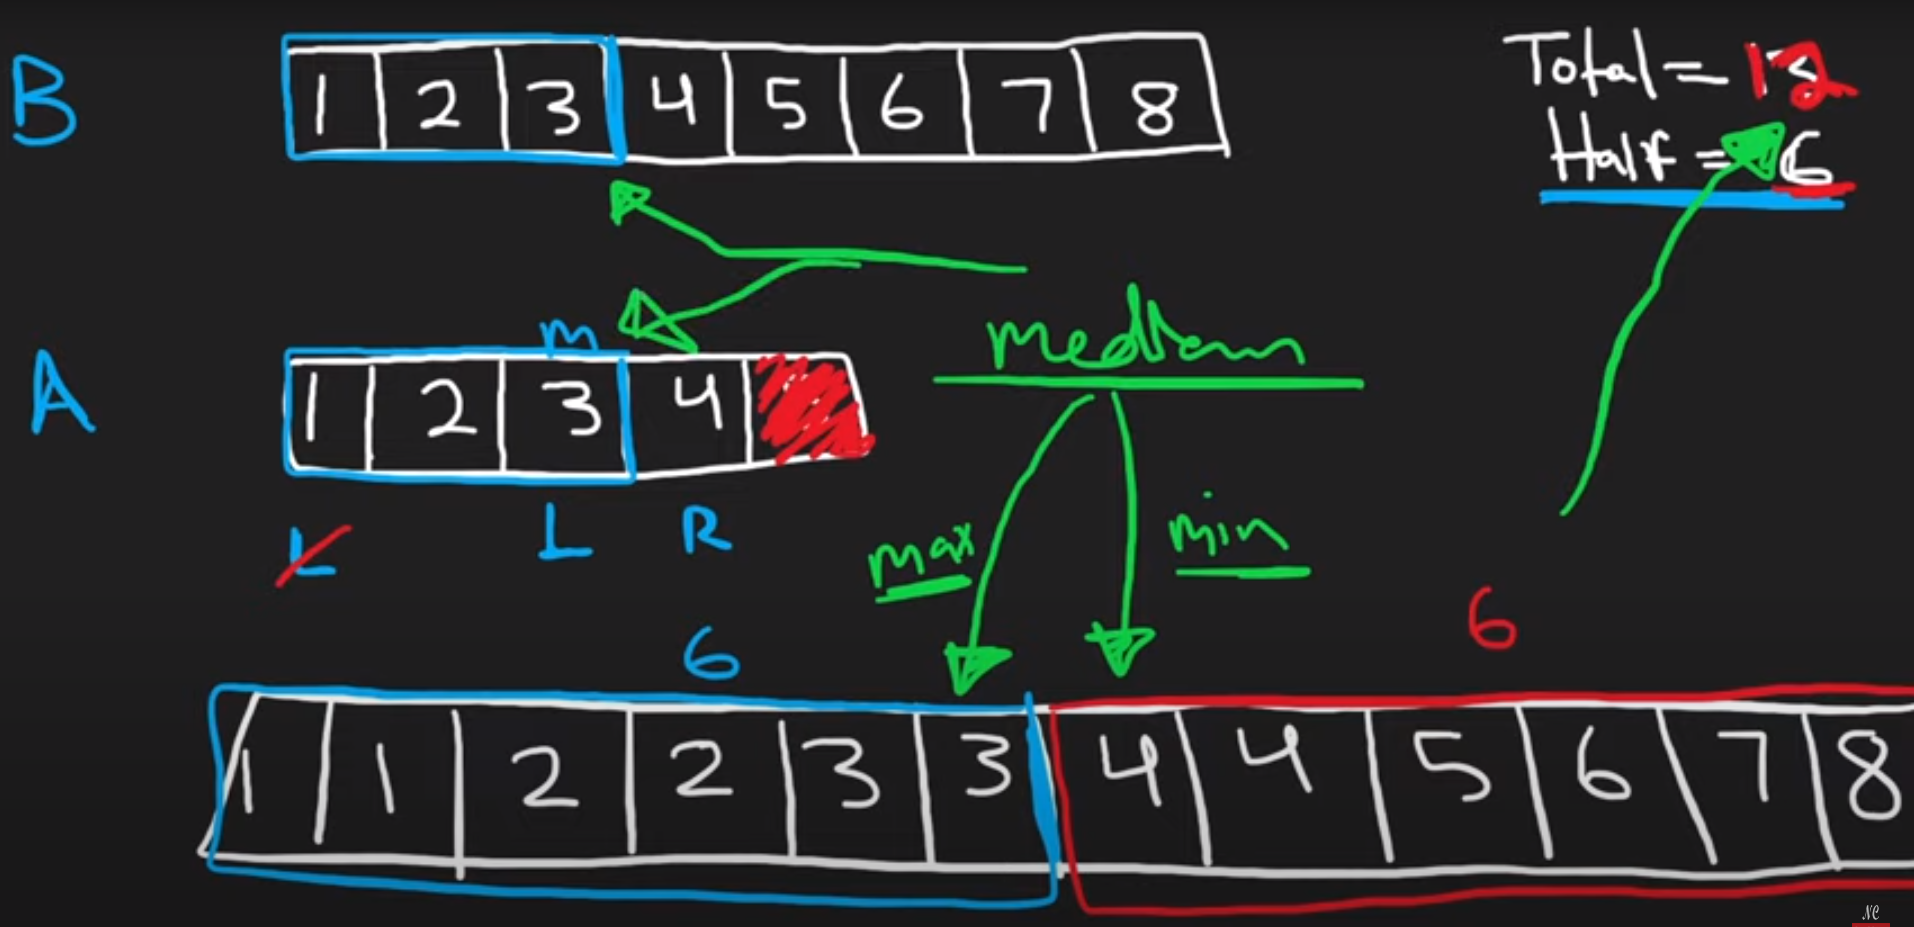 B
1 2 3 4 5 6 7 8
Total = 12
Half = 6
A
m
1 2 3 4
L L R
median
max
min
6
6
1 1 2 2 3 3 4 4 5 6 7 8
NC